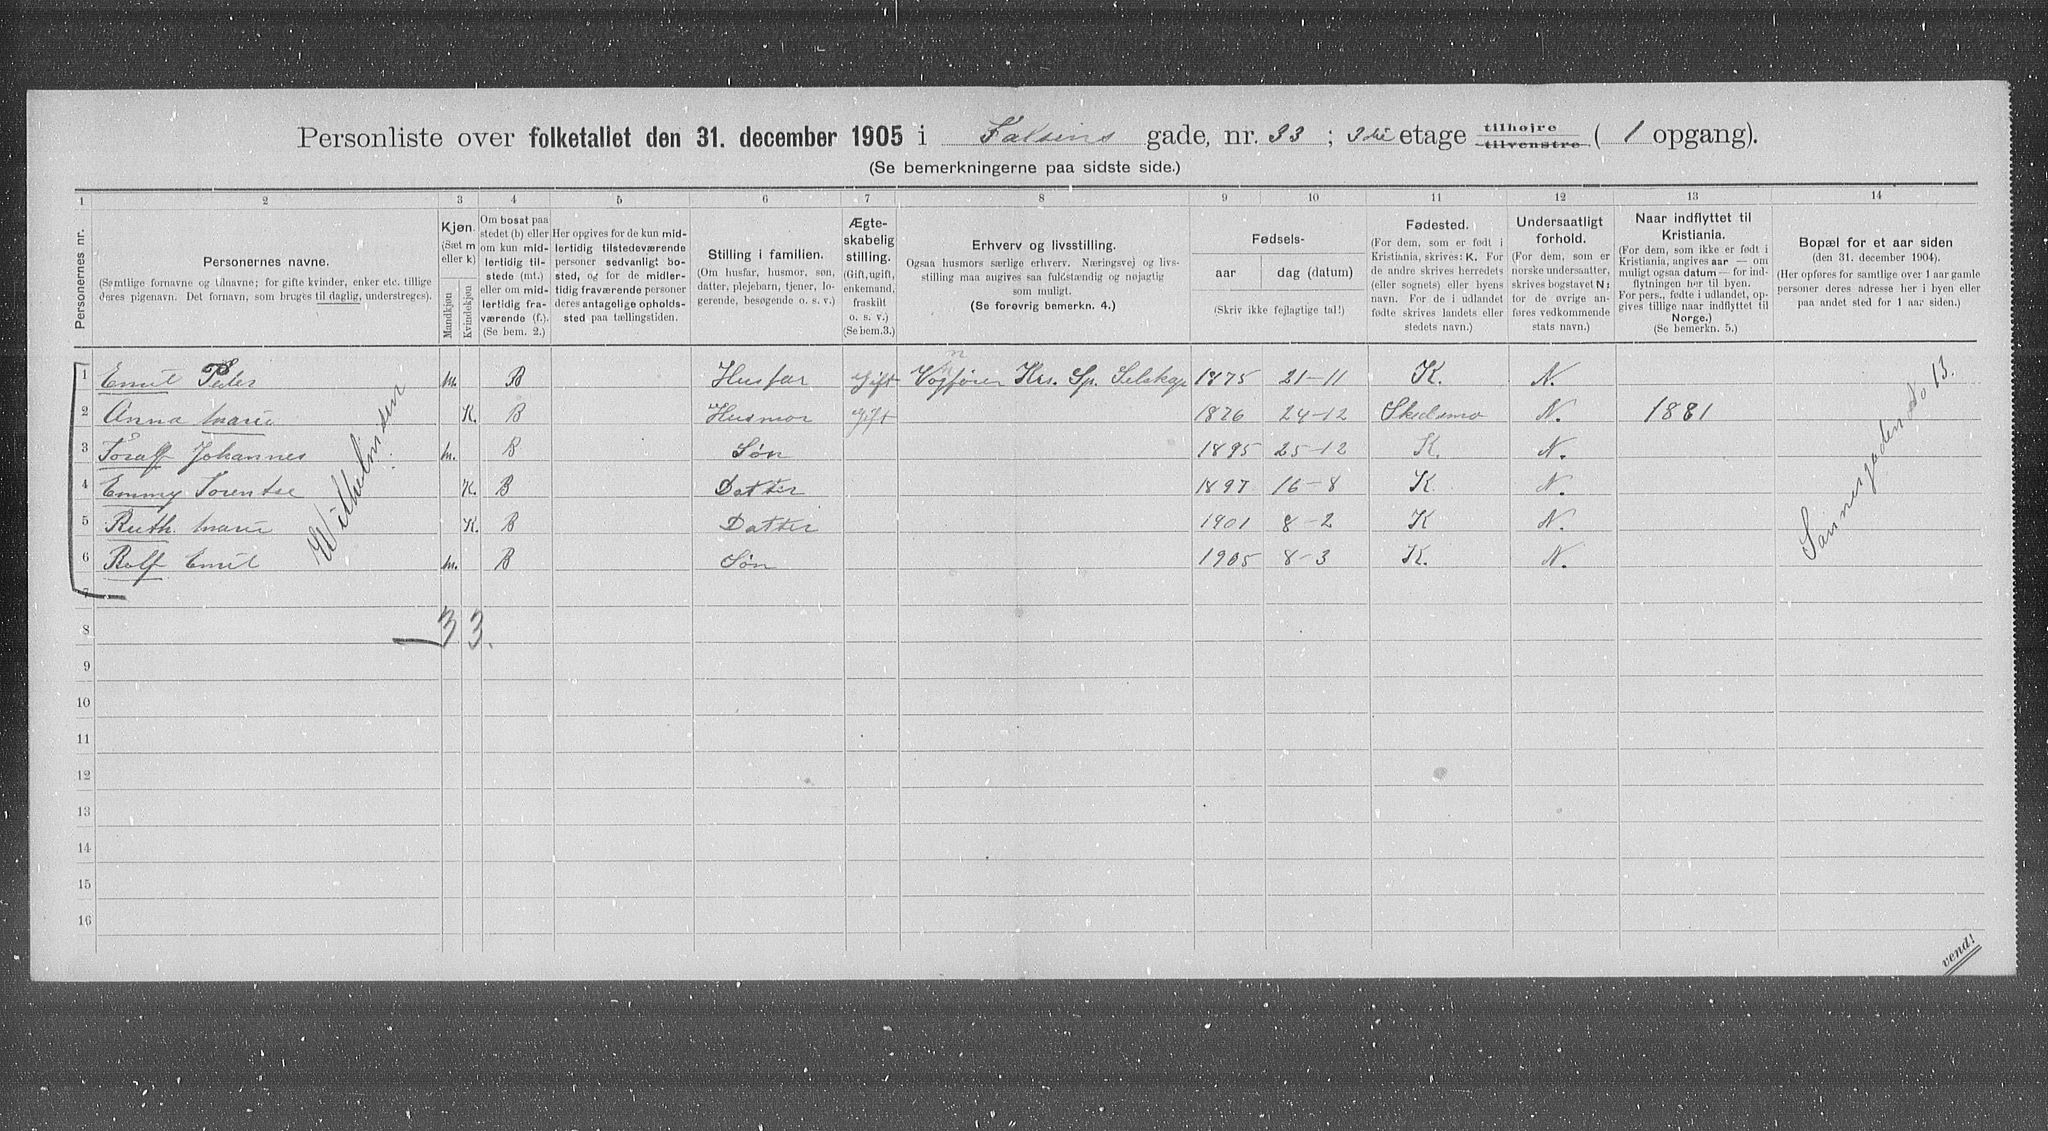 Personliste over folketallet den 31. december 1905 i Falsens gade, nr. 33; 3die etage tilhøjre tilvenstre (1 opgang).
(Se bemerkningerne paa sidste side.)
1 2 3 4 5 6 7 8 9 10 11 12 13 14
Personernes nr.
Personernes navne.
(Samtlige fornavne og tilnavne; for gifte kvinder, enker etc. tillige deres pigenavn. Det fornavn, som bruges til daglig, understreges).
Kjøn. (Sæt m eller k)
Mandkjøn
Kvindekjøn
Om bosat paa stedet (b) eller om kun midlertidig tilstede (mt.) eller om midlertidig fraværende (f.). (Se bem. 2.)
Her opgives for de kun midlertidig tilstedeværende personer sedvanligt bosted, og for de midlertidig fraværende personer deres antagelige opholdssted paa tællingstiden.
Stilling i familien.
(Om husfar, husmor, søn, datter, plejebarn, tjener, logerende, besøgende o. s. v.)
Ægteskabelig stilling.
(Gift, ugift, enkemand, fraskilt o. s. v.) (Se bem. 3.)
Erhverv og livsstilling.
Ogsaa husmors særlige erhverv. Næringsvej og livsstilling maa angives saa fuldstændig og nøjagtig som muligt.
(Se forøvrig bemerkn. 4.)
Fødsels-
aar
dag (datum)
(Skriv ikke fejlagtige tal!)
Fødested.
(For dem, som er født i Kristiania, skrives: K. For de andre skrives herredets (eller sognets) eller byens navn. For de i udlandet fødte skrives landets eller stedets navn.)
Undersaatligt forhold.
(For dem, som er norske undersaatter, skrives bogstavet N; for de øvrige anføres vedkommende stats navn.)
Naar indflyttet til Kristiania.
(For dem, som ikke er født i Kristiania, angives aar — om muligt ogsaa datum — for indflytningen her til byen. For pers., fødte i udlandet, opgives tillige naar indflyttet til Norge.)
(Se bemerkn. 5.)
Bopæl for et aar siden
(den 31. december 1904).
(Her opføres for samtlige over 1 aar gamle personer deres adresse her i byen eller paa andet sted for 1 aar siden.)
1 Emil Peder m. B Husfar Gift Vognfører Krs. Sp. Selskap 1875 21-11 K. N.
2 Anna Marie K. B Husmor Gift 1876 24-12 Skedsmo N. 1881
3 Toralf Johannes m. B Søn 1895 25-12 K. N.
4 Emmy Lorentse K. B Datter 1897 16-8 K N.
5 Ruth Marie K. B Datter 1901 8-2 K N.
6 Rolf Emil m. B Søn 1905 8-3 K. N.
Wilhelmsen
Sannergaden No 13.
7
8 3 3.
9
10
11
12
13
14
15
16
vend!